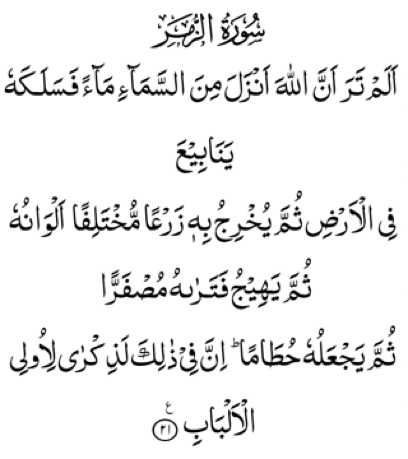 سُوۡرَةُ الزُّمَرِ
اَلَمۡ تَرَ اَنَّ اللّٰهَ اَنۡزَلَ مِنَ السَّمَآءِ مَآءً فَسَلَـكَهٗ
يَنَابِيۡعَ
فِى الۡاَرۡضِ ثُمَّ يُخۡرِجُ بِهٖ زَرۡعًا مُّخۡتَلِفًا اَلۡوَانُهٗ
ثُمَّ يَهِيۡجُ فَتَـرٰٮهُ مُصۡفَرًّا
ثُمَّ يَجۡعَلُهٗ حُطَامًا‌ؕ اِنَّ فِىۡ ذٰ لِكَ لَذِكۡرٰى لِاُولِى
الۡاَلۡبَابِ ع ﴿۲۱﴾